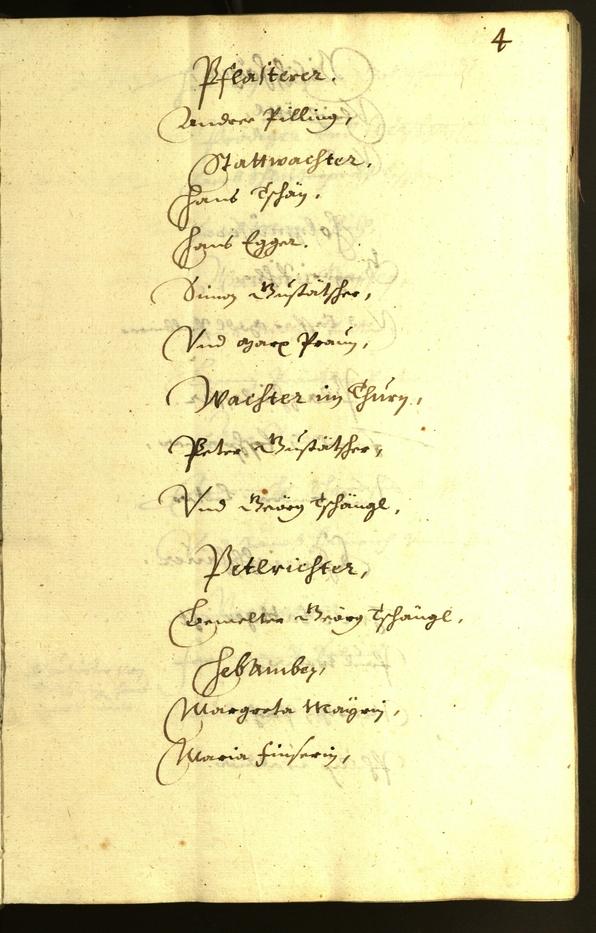 4
Pflasterer.
Andree Pilling,
Stattwachter.
Hans Tschäy,
Hans Egger.
Simon Gustätscher,
Vnd Marx Praun,
Wachter im Thurn,
Peter Gustätscher,
Vnd Geörg Tschängl,
Petlrichter,
Gemelter Geörg Tschängl,
Hebamben,
Margreta Mayrin,
Maria Finserin,